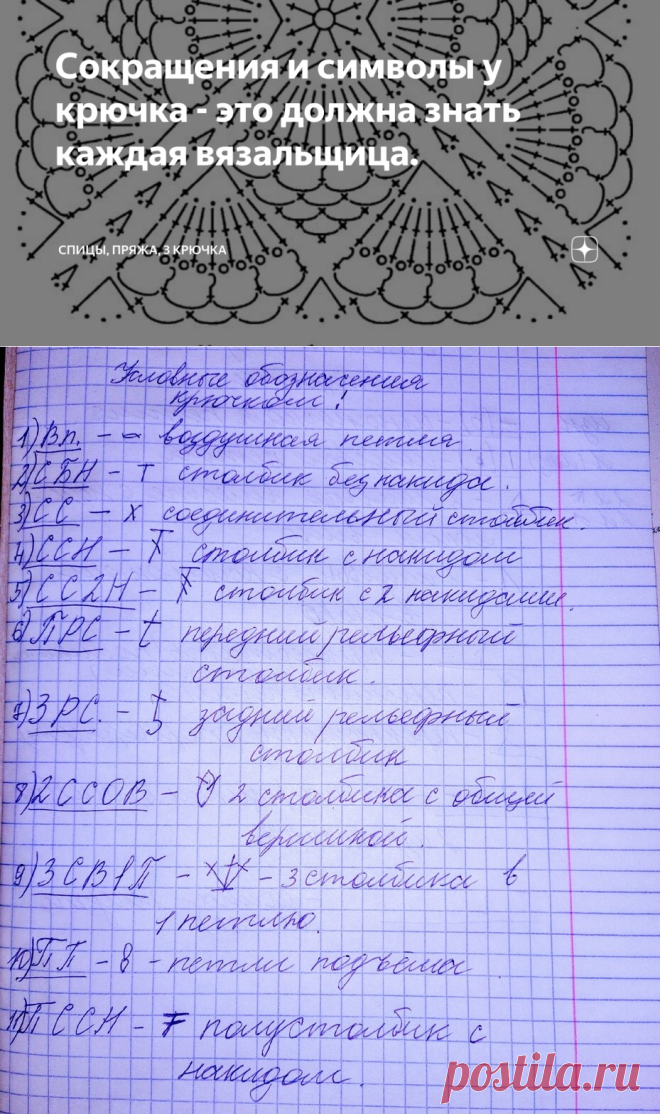 Сокращения и символы у
крючка - это должна знать
каждая вязальщица.
СПИЦЫ, ПРЯЖА, 3 КРЮЧКА
Условные обозначения
крючком!
1) Вп. - воздушная петля.
2) СБН - т столбик без накида.
3) СС - х соединительный столбик.
4) ССН - столбик с накидом
5) СС2Н - столбик с 2 накидами.
6) ПРС - t передний рельефный
столбик.
7) ЗРС. - задний рельефный
столбик
8) 2ССОВ - 2 столбика с общей
вершиной.
9) 3СВ1П - - 3 столбика в
1 петлю.
10) ПП - 8 - петли подъёма
11) ПССН - полустолбик с
накидом.
postila.ru